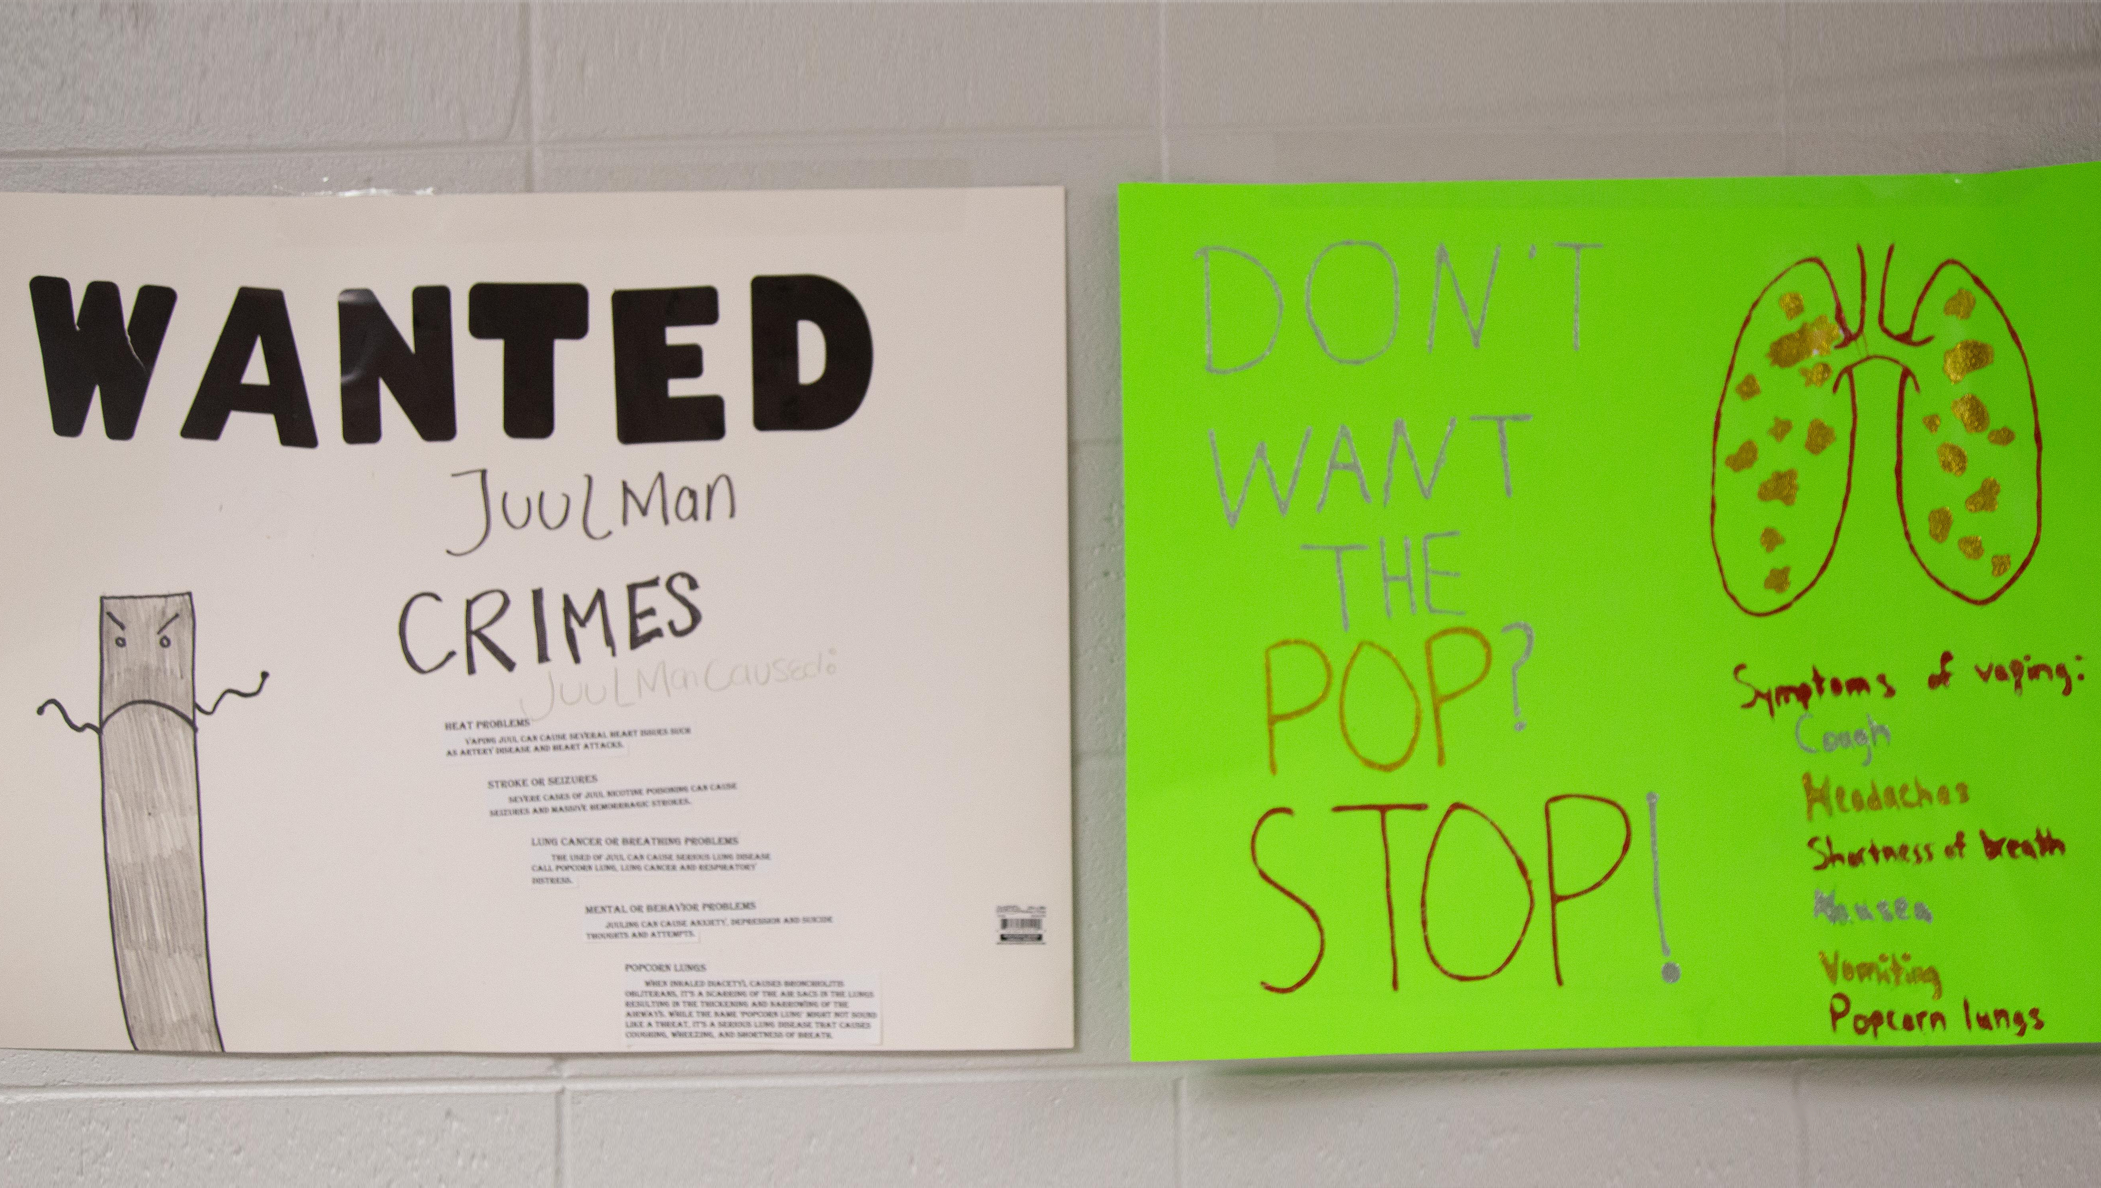 WANTED
JuulMan
CRIMES
JuulManCaused:
HEAT PROBLEMS
VAPING JUUL CAN CAUSE SEVERAL HEART ISSUES SUCH
AS ARTERY DISEASE AND HEART ATTACKS.
STROKE OR SEIZURES
SEVERE CASES OF JUUL NICOTINE POISONING CAN CAUSE
SEIZURES AND MASSIVE HEMORRHAGIC STROKES.
LUNG CANCER OR BREATHING PROBLEMS
THE USED OF JUUL CAN CAUSE SERIOUS LUNG DISEASE
CALL POPCORN LUNG, LUNG CANCER AND RESPIRATORY
DISTRESS.
MENTAL OR BEHAVIOR PROBLEMS
JUULING CAN CAUSE ANXIETY, DEPRESSION AND SUICIDE
THOUGHTS AND ATTEMPTS.
POPCORN LUNGS
WHEN INHALED DIACETYL CAUSES BRONCHIOLITIS
OBLITERANS, IT'S A SCARRING OF THE AIR SACS IN THE LUNGS
RESULTING IN THE THICKENING AND NARROWING OF THE
AIRWAYS. WHILE THE NAME "POPCORN LUNG" MIGHT NOT SOUND
LIKE A THREAT, IT'S A SERIOUS LUNG DISEASE THAT CAUSES
COUGHING, WHEEZING, AND SHORTNESS OF BREATH.
DON'T
WANT
THE
POP?
STOP!
Symptoms of vaping:
Cough
Headaches
Shortness of breath
Nausea
Vomiting
Popcorn lungs